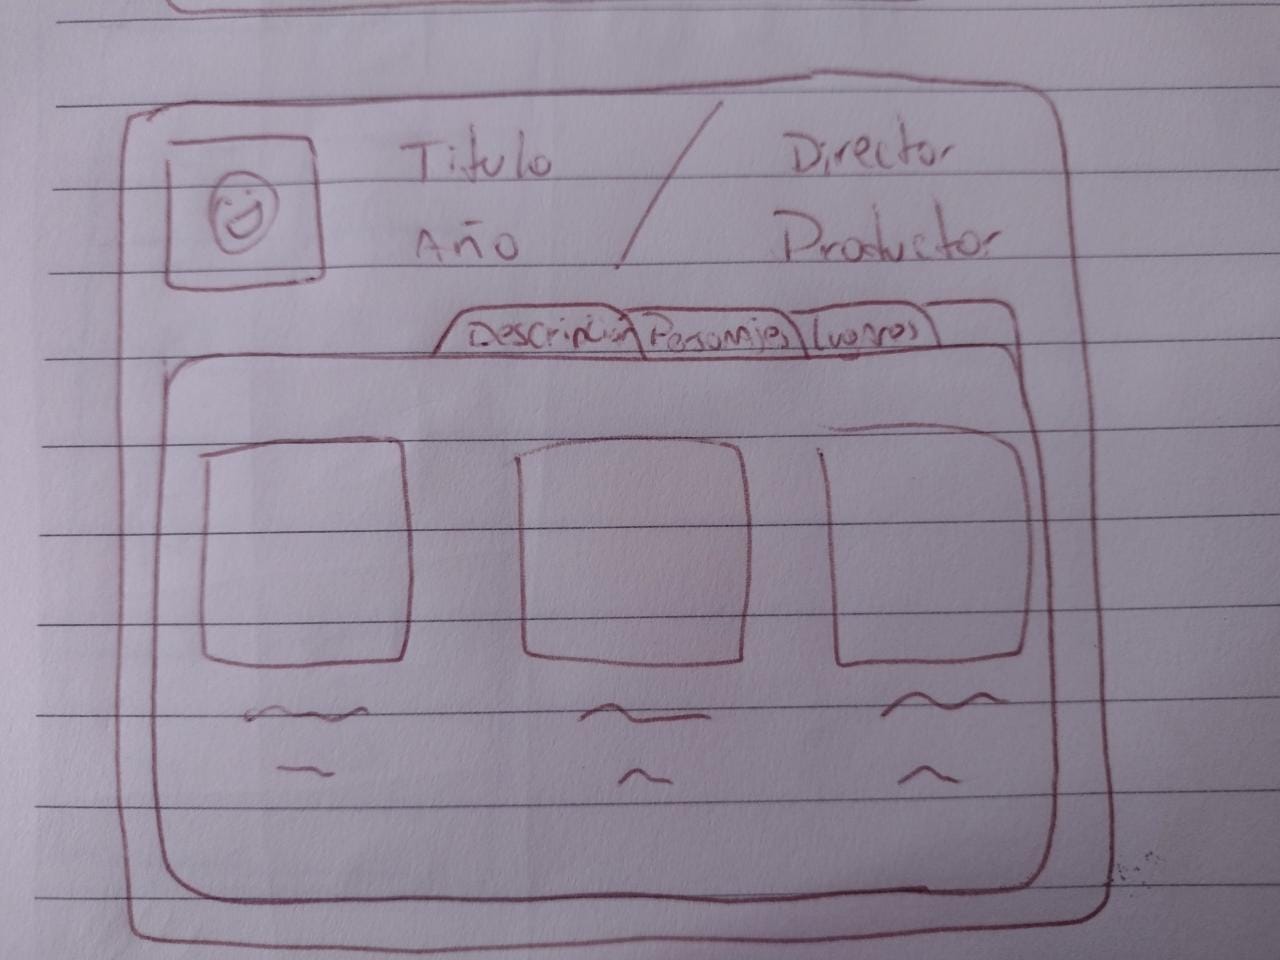 Titulo
Director
Año
Productor
Descripcion Personajes Lugares